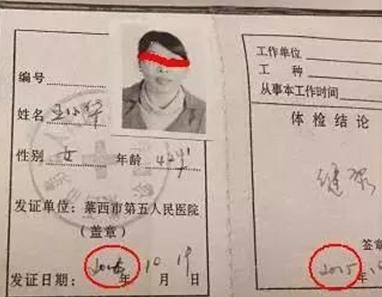 编号
姓名
性别 女 年龄 42岁
发证单位：莱西市第五人民医院
（盖章）
发证日期： 年10月19日
工作单位
工 种
从事本工作时间
体检结论
签章
2015 10